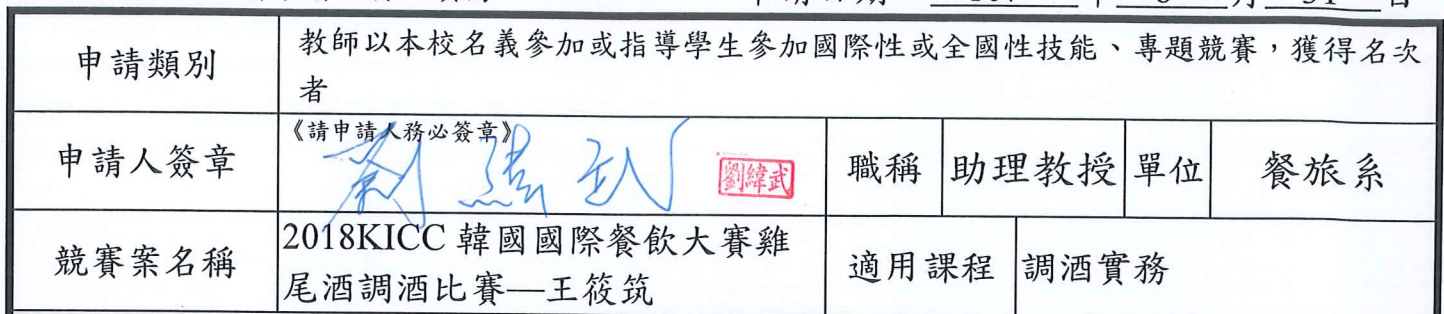 107 年 8 月 31 日
申請類別
教師以本校名義參加或指導學生參加國際性或全國性技能、專題競賽,獲得名次
者
申請人簽章
《請申請人務必簽章》
劉緯武
劉緯武
職稱
助理教授
單位
餐旅系
競賽案名稱
2018KICC 韓國國際餐飲大賽雞
尾酒調酒比賽—王筱筑
適用課程
調酒實務